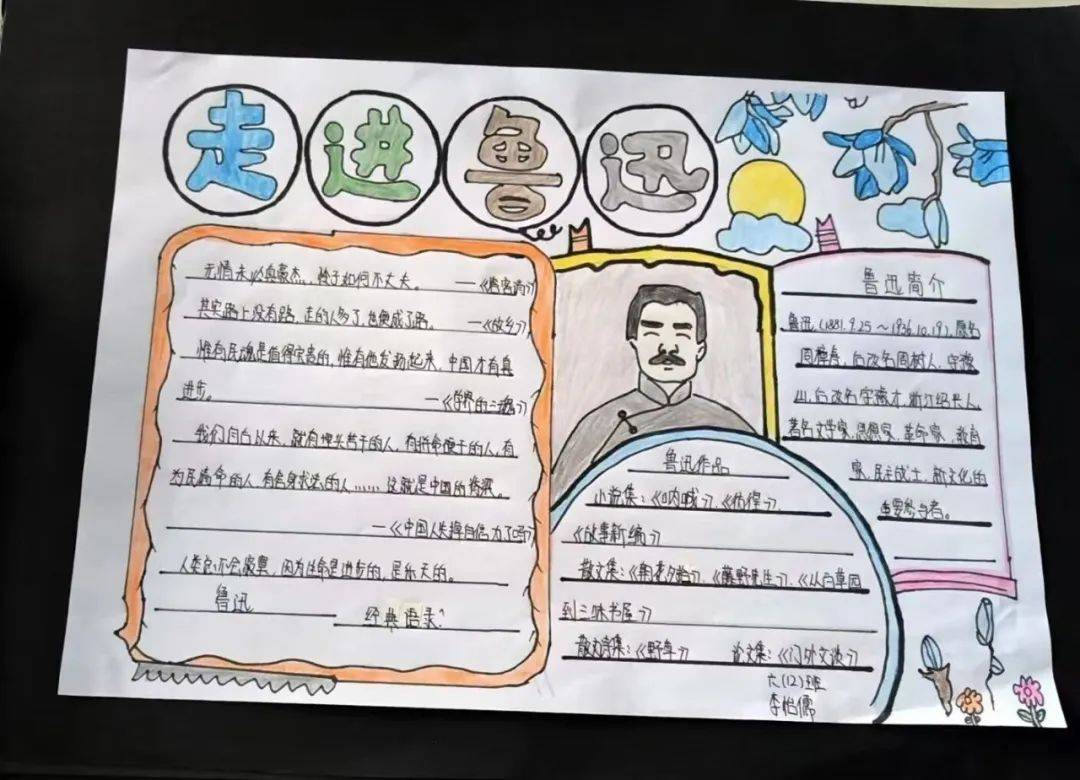 走进鲁迅
无情未必真豪杰，怜子如何不丈夫。——《答客诮》
其实路上没有路，走的人多了，也便成了路。——《故乡》
惟有民魂是值得宝贵的，惟有他发动起来，中国才有真
进步。——《学界的三魂》
我们自古以来，就有埋头苦干的人，有拼命硬干的人，有
为民请命的人，有舍身求法的人……这就是中国的脊梁。
——《中国人失掉自信力了吗》
人类总不会寂寞，因为生命是进步的，是乐天的。
鲁迅 经典语录
鲁迅作品
小说集：《呐喊》、《彷徨》、
《故事新编》
散文集：《朝花夕拾》、《藤野先生》、《从百草园
到三味书屋》
散文诗集：《野草》 论文集：《门外文谈》
六(12)班
李怡儒
鲁迅简介
鲁迅(1881.9.25～1936.10.19)，原名
周樟寿，后改名周树人，字豫
山，后改名字豫才，浙江绍兴人，
著名文学家、思想家、革命家、教育
家、民主战士，新文化的
重要参与者。